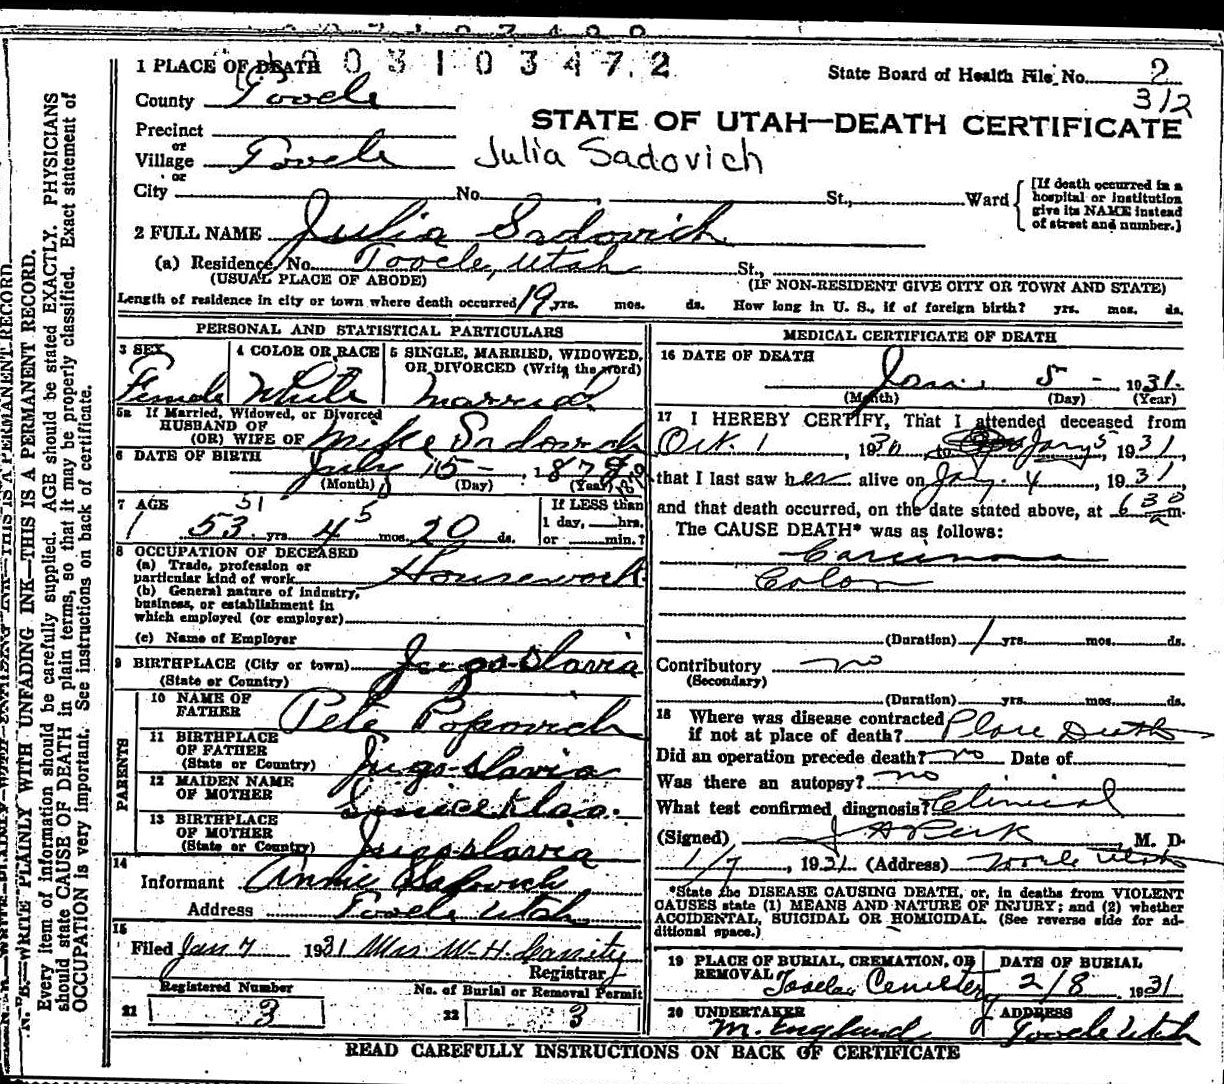 1 PLACE OF DEATH 0 3 1 0 3 4 7 2
State Board of Health File No. 2
312
County Tooele
STATE OF UTAH—DEATH CERTIFICATE
Precinct
or
Village Tooele
Julia Sadovich
or
City No. St., Ward
[If death occurred in a
hospital or institution
give its NAME instead
of street and number.]
2 FULL NAME Julia Sadovich
(a) Residence, No. Tooele, Utah St.,
(USUAL PLACE OF ABODE) (IF NON-RESIDENT GIVE CITY OR TOWN AND STATE)
Length of residence in city or town where death occurred 19 yrs. mos. ds. How long in U. S., if of foreign birth? yrs. mos. ds.
PERSONAL AND STATISTICAL PARTICULARS
3 SEX 4 COLOR OR RACE 5 SINGLE, MARRIED, WIDOWED,
OR DIVORCED (Write the word)
Female White Married
5a If Married, Widowed, or Divorced
HUSBAND OF
(OR) WIFE OF Mike Sadovich
6 DATE OF BIRTH July 15 - 187
(Month) (Day) (Year)
7 AGE 51 If LESS than
53 yrs. 4 5 mos. 20 ds. 1 day, hrs.
or min.?
8 OCCUPATION OF DECEASED
(a) Trade, profession or
particular kind of work Housework
(b) General nature of industry,
business, or establishment in
which employed (or employer)
(c) Name of Employer
9 BIRTHPLACE (City or town) Jugo-Slavia
(State or Country)
PARENTS
10 NAME OF
FATHER Pete Popovich
11 BIRTHPLACE
OF FATHER
(State or Country) Jugo-slavia
12 MAIDEN NAME
OF MOTHER
13 BIRTHPLACE
OF MOTHER
(State or Country) Jugoslavia
14
Informant Annie Sadovich
Address Tooele Utah
15
Filed Jan 7 1931 Mrs W. H.
Registrar
Registered Number No. of Burial or Removal Permit
21 3 22 3
MEDICAL CERTIFICATE OF DEATH
16 DATE OF DEATH
Jan. 5 - 1931.
(Month) (Day) (Year)
17 I HEREBY CERTIFY, That I attended deceased from
Oct. 1, 1930, to Jany 5, 1931,
that I last saw her alive on Jany. 4, 1931,
and that death occurred, on the date stated above, at 6 30 a m.
The CAUSE DEATH* was as follows:
Carcinoma
Colon
(Duration) 1 yrs. mos. ds.
Contributory no
(Secondary)
(Duration) yrs. mos. ds.
18 Where was disease contracted
if not at place of death? Place Death
Did an operation precede death? no Date of
Was there an autopsy? no
What test confirmed diagnosis? Clinical
(Signed) J A Peck M. D.
1/7, 1931 (Address) Tooele Utah
*State the DISEASE CAUSING DEATH, or, in deaths from VIOLENT
CAUSES state (1) MEANS AND NATURE OF INJURY; and (2) whether
ACCIDENTAL, SUICIDAL OR HOMICIDAL. (See reverse side for ad-
ditional space.)
19 PLACE OF BURIAL, CREMATION, OR DATE OF BURIAL
REMOVAL Tooele Cemetery 2/8 1931
20 UNDERTAKER ADDRESS
M. England Tooele Utah
READ CAREFULLY INSTRUCTIONS ON BACK OF CERTIFICATE
N. B.—WRITE PLAINLY WITH UNFADING INK—THIS IS A PERMANENT RECORD.
Every item of information should be carefully supplied. AGE should be stated EXACTLY. PHYSICIANS
should state CAUSE OF DEATH in plain terms, so that it may be properly classified. Exact statement of
OCCUPATION is very important. See instructions on back of certificate.